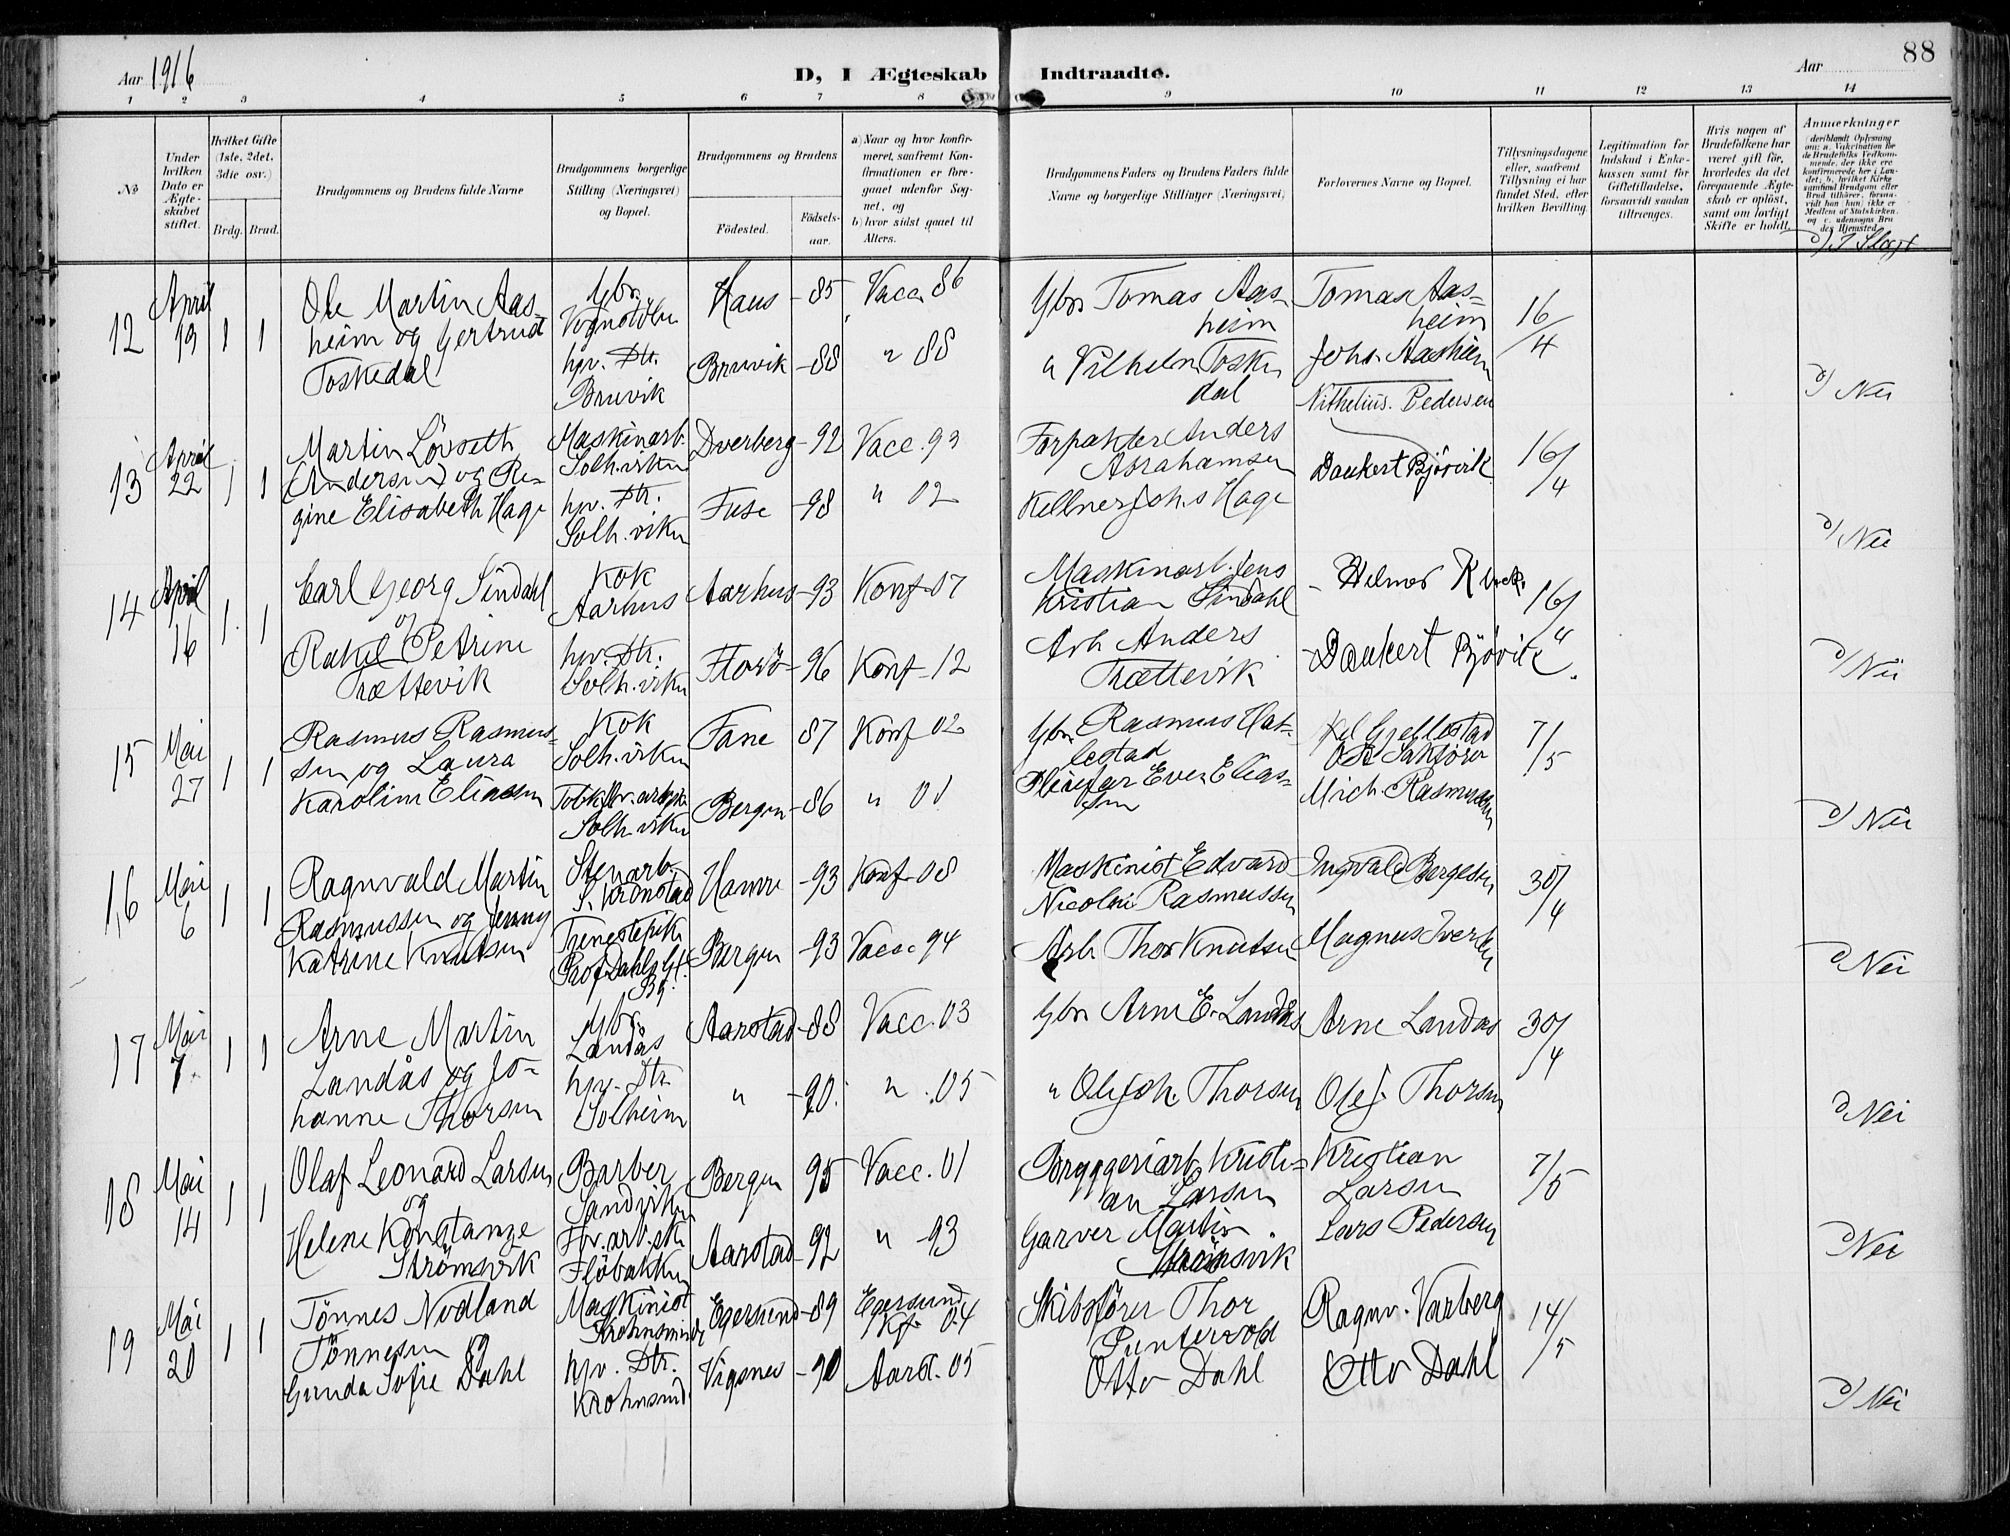 88
Aar 1916
D, I Ægteskab Indtraadte.
Aar
1 2 3 4 5 6 7 8 9 10 11 12 13 14
No
Under hvilken Dato er Ægteskabet stiftet.
Hvilket Gifte (1ste, 2det, 3die osv.)
Brdg. Brud.
Brudgommens og Brudens fulde Navne
Brudgommens borgerlige Stilling (Næringsvei) og Bopæl.
Brudgommens og Brudens
Fødested.
Fødsels-aar.
a) Naar og hvor konfirmeret, saafremt Konfirmationen er foregaaet udenfor Sognet, og
b) hvor sidst gaaet til Alters.
Brudgommens Faders og Brudens Faders fulde Navne og borgerlige Stillinger (Næringsvei)
Forlovernes Navne og Bopæl.
Tillysningsdagene eller, saafremt Tillysning ei har fundet Sted, efter hvilken Bevilling.
Legitimation for Indskud i Enkekassen samt for Giftetilladelse, forsaavidt saadan tiltrænges.
Hvis nogen af Brudefolkene har været gift før, hvorledes da det foregaaende Ægteskab er opløst, samt om lovligt Skifte er holdt.
Anmerkninger
(deriblandt Oplysning om: a. Vakcination for de Brudefolks Vedkommende, der ikke ere konfirmerede her i Landet; b. hvilket Kirkesamfund Brudgom eller Brud tilhører, forsaavidt han (hun) ikke er Medlem af Statskirken, og c. udensogns Brudes Hjemsted.
d/ I Slægt
12 April 19 1 1
Ole Martin Aas-
heim og Gertrud
Toskedal
Gbr.
hjv. Dtr.
Bruvik
Haus -85 Vacc. 86
Bruvik -88 " 88
Gbr. Tomas Aas-
heim
" Vilhelm Toske
dal
Tomas Aas-
heim
Johs. Aasheim
16/4
d/ Nei
13 April 22 1 1
Martin Lövseth
(Andersen) og Re-
gine Elisabeth Hage
Maskinarb.
Solh.viken
hjv. Dtr.
Solh.viken
Dverberg -92 Vacc. 93
Fuse -98 " 02
Forpakter Anders
Abrahamsen
Kellner Joh.s Hage
Nithelius. Pedersen
Dankert Bjövik
16/4
d/ Nei
14 April 16 1 1
Carl Georg Sindahl
og
Rakel Petrine
Trættevik
Kok
Aarhus
hjv. Dtr.
Solh.viken
Aarhus -93 Konf 07
Florö -96 Konf -12
Maskinarb. Jens
Kristian Sindahl
Arb Anders
Trættevik
- Helmer
- Dankert Bjövik
16/"
d/ Nei
15 Mai 27 1 1
Rasmus Rasmus-
sen og Laura
Karoline Eliassen
Kok
Solh.viken
Solh.viken
Fane 87 Konf 02
Bergen -86 " 01
Gbr. Rasmus Hat-
lestad
Even Elias-
sen
Gjellestad
Mich. Rasmussen
7/5
d/ Nei
16 Mai 6 1 1
Ragnvald Martin
Rasmussen og Jenny
Katrine Knutsen
Stenarb.
S. Kronstad
Tjenestepike
Prof Dahls Gt.
Bg.
Hamre -93 Konf 08
Bergen -93 Vacc 94
Maskinist Edvard
Nicolai Rasmussen
Arb Thor Knutsen
Ingvald Bergesen
Magnus
30/4
d/ Nei
17 Mai 7. 1 1
Arne Martin
Landås og Jo-
hanne Thorsen
Gbr
Landås
hjv. Dtr.
Solheim
Aarstad -88 Vacc. 03
" -90. " .05
Gbr Arne E. Landås
" Ole Joh. Thorsen
Arne Landås
Ole J. Thorsen
30/4
d/ Nei
18 Mai 14 1 1
Olaf Leonard Larsen
og
Helene Konstanze
Strömsvik
Barber
Sandviken
Flöbakken
Bergen 95 Vacc. 01
Aarstad -92 " -93
Bryggeriarb. Kristi-
an Larsen
Garver Martin
Strömsvik
Kristian
Larsen
Lars Pedersen
7/5
d/ Nei
19 Mai 20 1 1
Tönnes Nodland
Tönnesen og
Gunda Sofie Dahl
Maskinist
Krohnsminde
hjv. Dtr.
Krohnsmind
Egersund -89 Egersund
Kf. 04
Vigsnes -90 Aarst. 05
Skibsförer Thor
Puntervold
Otto Dahl
Ragnv. Varberg
Otto Dahl
14/5
d/ Nei